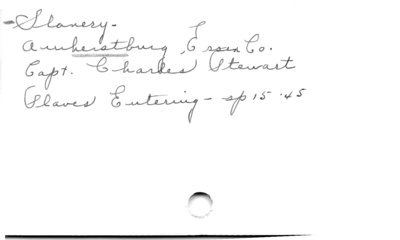 Slavery -
Amherstburg, Essex Co.
Capt. Charles Stewart
Slaves Entering - sp 15 · 45